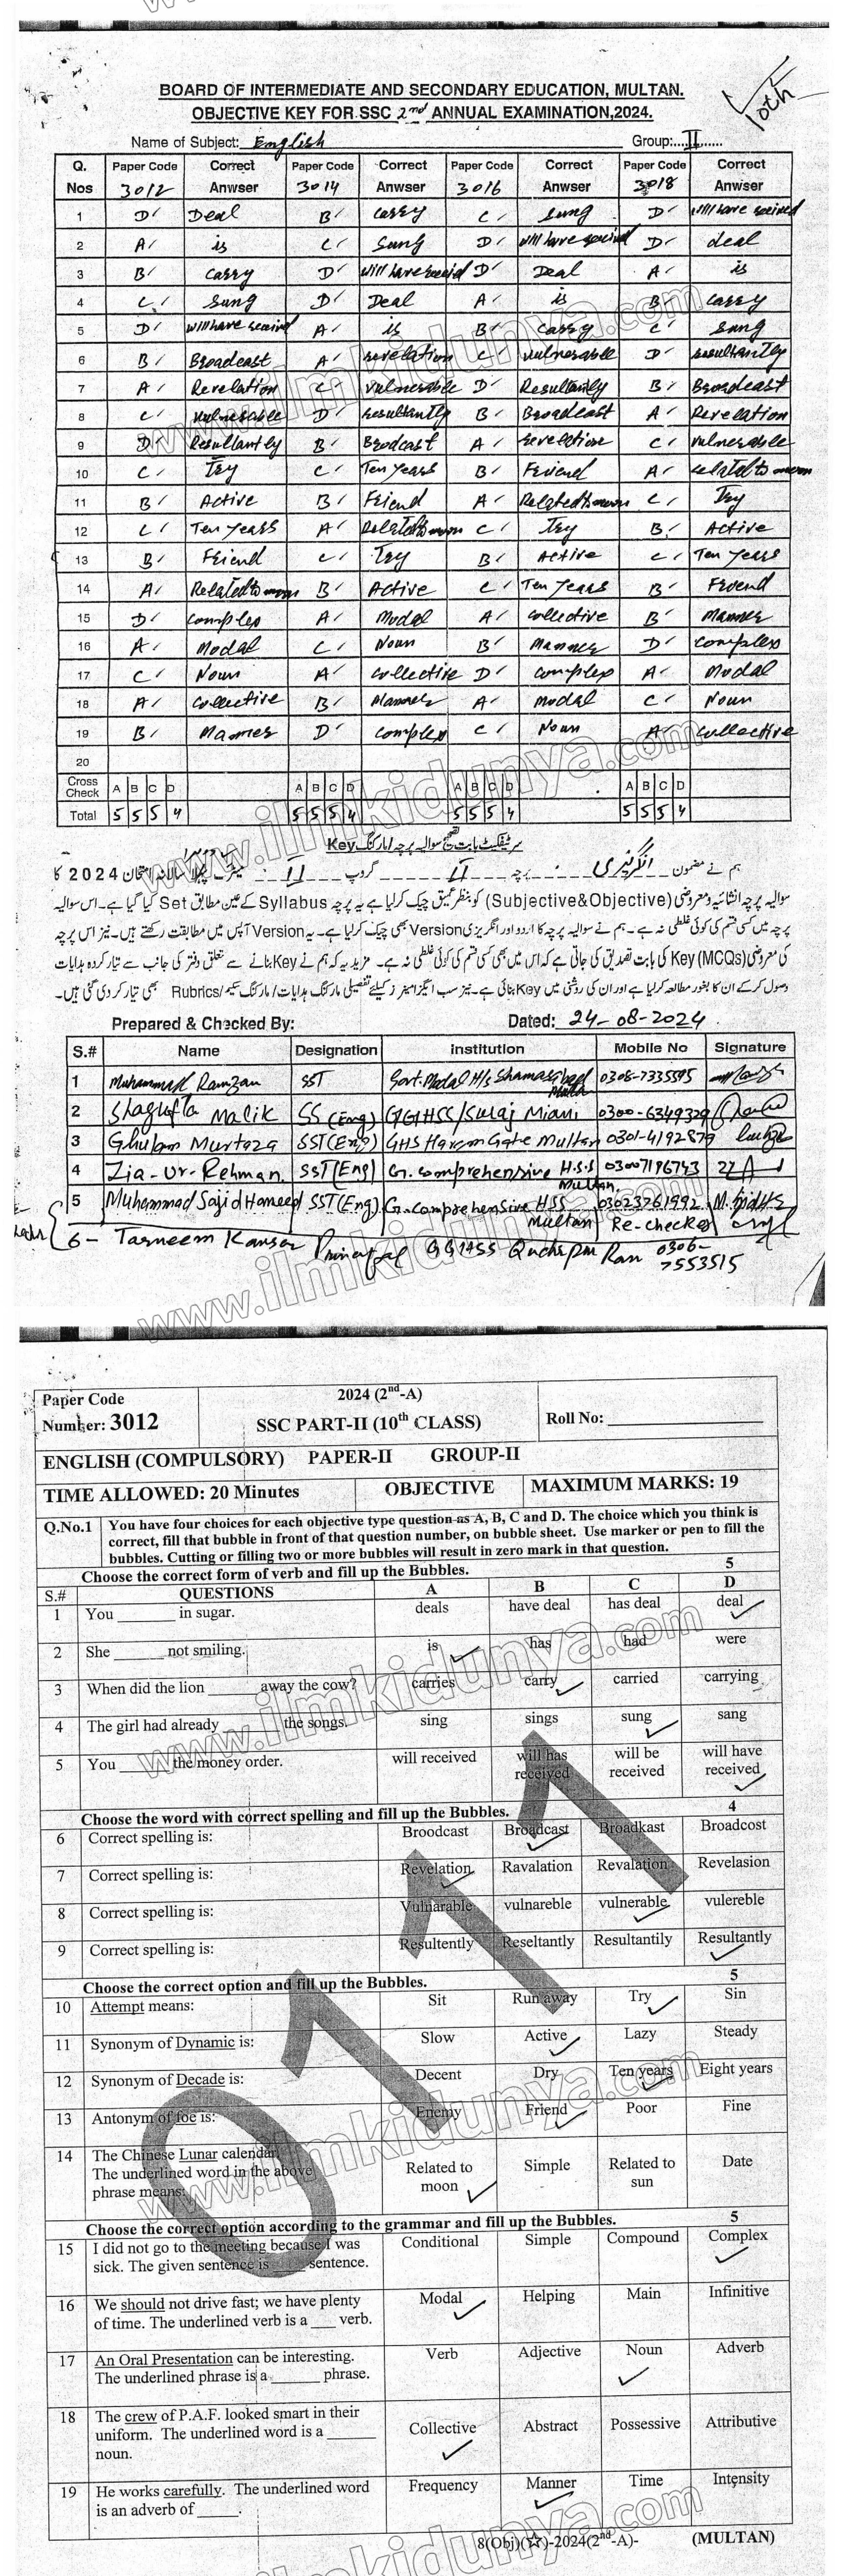 BOARD OF INTERMEDIATE AND SECONDARY EDUCATION, MULTAN.
OBJECTIVE KEY FOR SSC 2nd ANNUAL EXAMINATION,2024.
10th
Name of Subject: English Group:....II......
Q. Nos Paper Code 3012 Correct Anwser Paper Code 3014 Correct Anwser Paper Code 3016 Correct Anwser Paper Code 3018 Correct Anwser
1 D Deal B carry C sung D will have received
2 A is C Sung D will have received D deal
3 B carry D will have received D Deal A is
4 C sung D Deal A is B carry
5 D will have received A is B carry C sung
6 B Broadcast A revelation C vulnerable D resultantly
7 A Revelation C vulnerable D Resultantly B Broadcast
8 C vulnerable D resultantly B Broadcast A Revelation
9 D Resultantly B Brodcast A revelation C vulnerable
10 C Try C Ten years B Friend A related to moon
11 B Active B Friend A Related to moon C Try
12 C Ten years A Related to moon C Try B Active
13 B Friend C Try B Active C Ten years
14 A Related to moon B Active C Ten years B Friend
15 D complex A Modal A collective B Manner
16 A Modal C Noun B Manner D complex
17 C Noun A collective D complex A Modal
18 A collective B Manner A modal C Noun
19 B Manner D complex C Noun A collective
20
Cross Check A B C D A B C D A B C D A B C D
Total 5 5 5 4 5 5 5 4 5 5 5 4 5 5 5 4
سرٹیفکیٹ بابت تصحیح سوالیہ پرچہ / مارکنگ Key
ہم نے مضمون انگریزی پرچہ II گروپ II میٹرک پہلا سالانہ امتحان 2024 کا
سوالیہ پرچہ انشائیہ ومعروضی (Subjective&Objective) کو بنظر عمیق چیک کرلیا ہے یہ پرچہ Syllabus کے عین مطابق Set کیا گیا ہے۔ اس سوالیہ
پرچہ میں کسی قسم کی کوئی غلطی نہ ہے۔ ہم نے سوالیہ پرچہ کا اردو اور انگریزی Version بھی چیک کرلیا ہے۔ یہ Version آپس میں مطابقت رکھتے ہیں۔ نیز اس پرچہ
کی معروضی (MCQs) Key کی بابت تصدیق کی جاتی ہے کہ اس میں بھی کسی قسم کی کوئی غلطی نہ ہے۔ مزید یہ کہ ہم نے Key بنانے سے متعلق دفتر کی جانب سے تیار کردہ ہدایات
وصول کرکے ان کا بغور مطالعہ کرلیا ہے اور ان کی روشنی میں Key بنائی ہے۔ نیز سب ایگزامینرز کیلئے تفصیلی مارکنگ ہدایات / مارکنگ سکیم / Rubrics بھی تیار کردی گئی ہیں۔
Prepared & Checked By: Dated: 24-08-2024
S.# Name Designation Institution Mobile No Signature
1 Muhammad Ramzan SST Govt. Modal H/s Shamasabad Multan 0308-7335595
2 Shagufta Malik SS (Eng) GGHSS/Suraj Miani 0300-6349329
3 Ghulam Murtaza SST(Eng) GHS Haram Gate Multan 0301-4192879
4 Zia-Ur-Rehman SST(Eng) G. comprehensive H.S.S Multan. 03007196743
5 Muhammad Sajid Hameed SST(Eng) G. Comprehensive HSS Multan 03023761992
Re-checker
6- Tasneem Kausar Principal GGHSS Ran 0306-7553515
Paper Code
Number: 3012
2024 (2nd-A)
SSC PART-II (10th CLASS)
Roll No:
ENGLISH (COMPULSORY) PAPER-II GROUP-II
TIME ALLOWED: 20 Minutes OBJECTIVE MAXIMUM MARKS: 19
Q.No.1 You have four choices for each objective type question as A, B, C and D. The choice which you think is
correct, fill that bubble in front of that question number, on bubble sheet. Use marker or pen to fill the
bubbles. Cutting or filling two or more bubbles will result in zero mark in that question.
Choose the correct form of verb and fill up the Bubbles. 5
S.# QUESTIONS A B C D
1 You ______ in sugar. deals have deal has deal deal
2 She ______ not smiling. is has had were
3 When did the lion ______ away the cow? carries carry carried carrying
4 The girl had already ______ the songs. sing sings sung sang
5 You ______ the money order. will received will has received will be received will have received
Choose the word with correct spelling and fill up the Bubbles. 4
6 Correct spelling is: Broodcast Broadcast Broadkast Broadcost
7 Correct spelling is: Revelation Ravalation Revalation Revelasion
8 Correct spelling is: Vulnarable vulnareble vulnerable vulereble
9 Correct spelling is: Resultently Reseltantly Resultantily Resultantly
Choose the correct option and fill up the Bubbles. 5
10 Attempt means: Sit Run away Try Sin
11 Synonym of Dynamic is: Slow Active Lazy Steady
12 Synonym of Decade is: Decent Dry Ten years Eight years
13 Antonym of foe is: Enemy Friend Poor Fine
14 The Chinese Lunar calendar. The underlined word in the above phrase means: Related to moon Simple Related to sun Date
Choose the correct option according to the grammar and fill up the Bubbles. 5
15 I did not go to the meeting because I was sick. The given sentence is ____ sentence. Conditional Simple Compound Complex
16 We should not drive fast; we have plenty of time. The underlined verb is a ___ verb. Modal Helping Main Infinitive
17 An Oral Presentation can be interesting. The underlined phrase is a ______ phrase. Verb Adjective Noun Adverb
18 The crew of P.A.F. looked smart in their uniform. The underlined word is a ______ noun. Collective Abstract Possessive Attributive
19 He works carefully. The underlined word is an adverb of _____. Frequency Manner Time Intensity
8(Obj)(☆)-2024(2nd-A)- (MULTAN)
0111
www.ilmkidunya.com